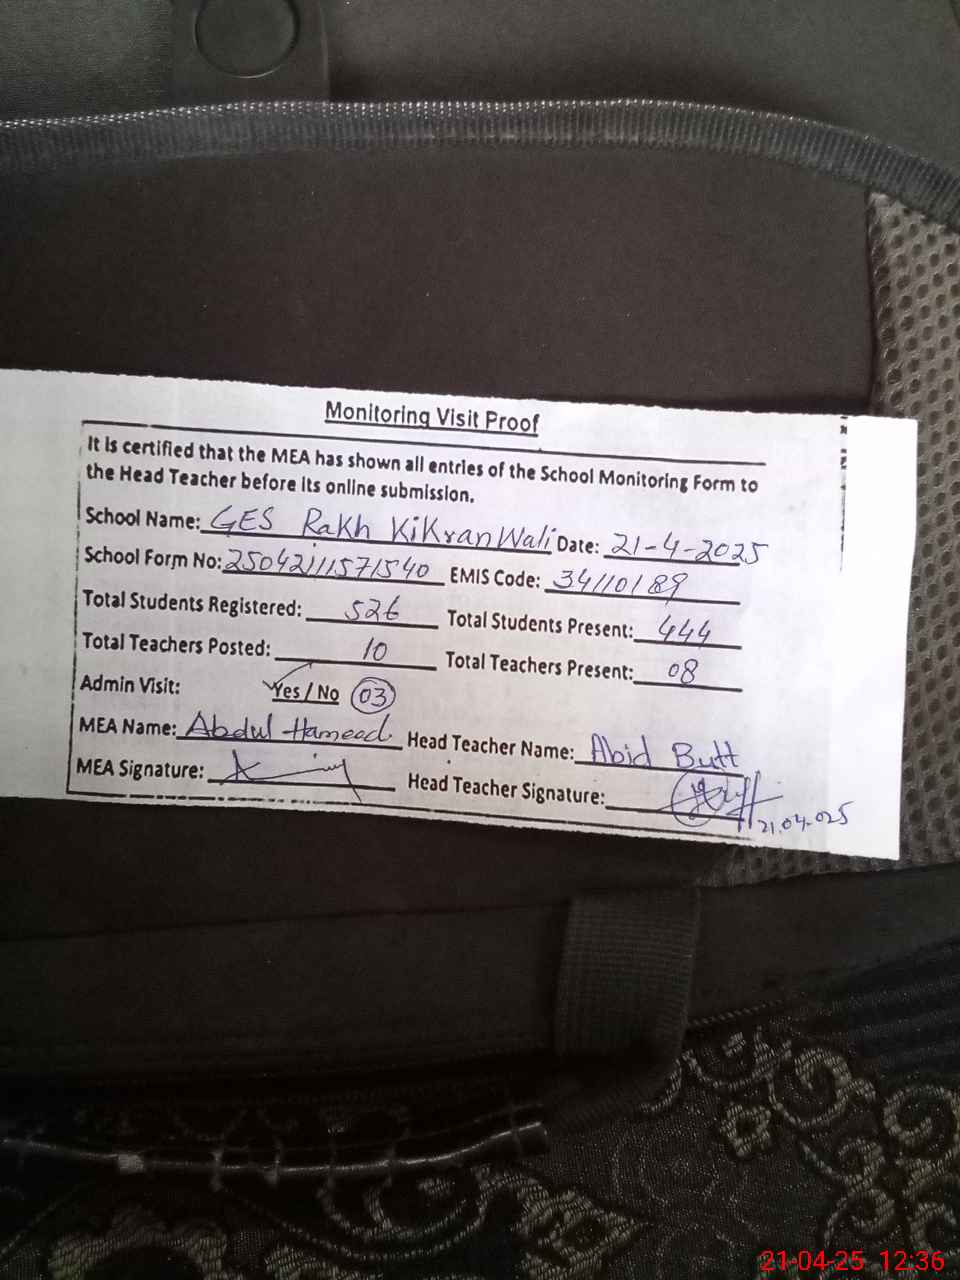 Monitoring Visit Proof
It is certified that the MEA has shown all entries of the School Monitoring Form to
the Head Teacher before its online submission.
School Name: GES Rakh KiKran Wali Date: 21-4-2025
School Form No: 25042111571540 EMIS Code: 34110189
Total Students Registered: 526 Total Students Present: 444
Total Teachers Posted: 10 Total Teachers Present: 08
Admin Visit: Yes / No 03
MEA Name: Abdul Hameed Head Teacher Name: Abid Butt
MEA Signature: Head Teacher Signature:
21.04.025
21-04-25 12:36